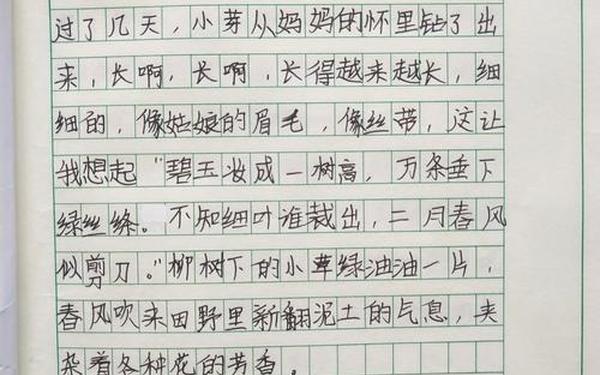 过了几天，小芽从妈妈的怀里钻了出
来，长啊，长啊，长得越来越长，细
细的，像姑娘的眉毛，像丝带，这让
我想起“碧玉妆成一树高，万条垂下
绿丝绦。不知细叶谁裁出，二月春风
似剪刀。”柳树下的小草绿油油一片，
春风吹来田野里新翻泥土的气息，夹
杂着各种花的芳香。